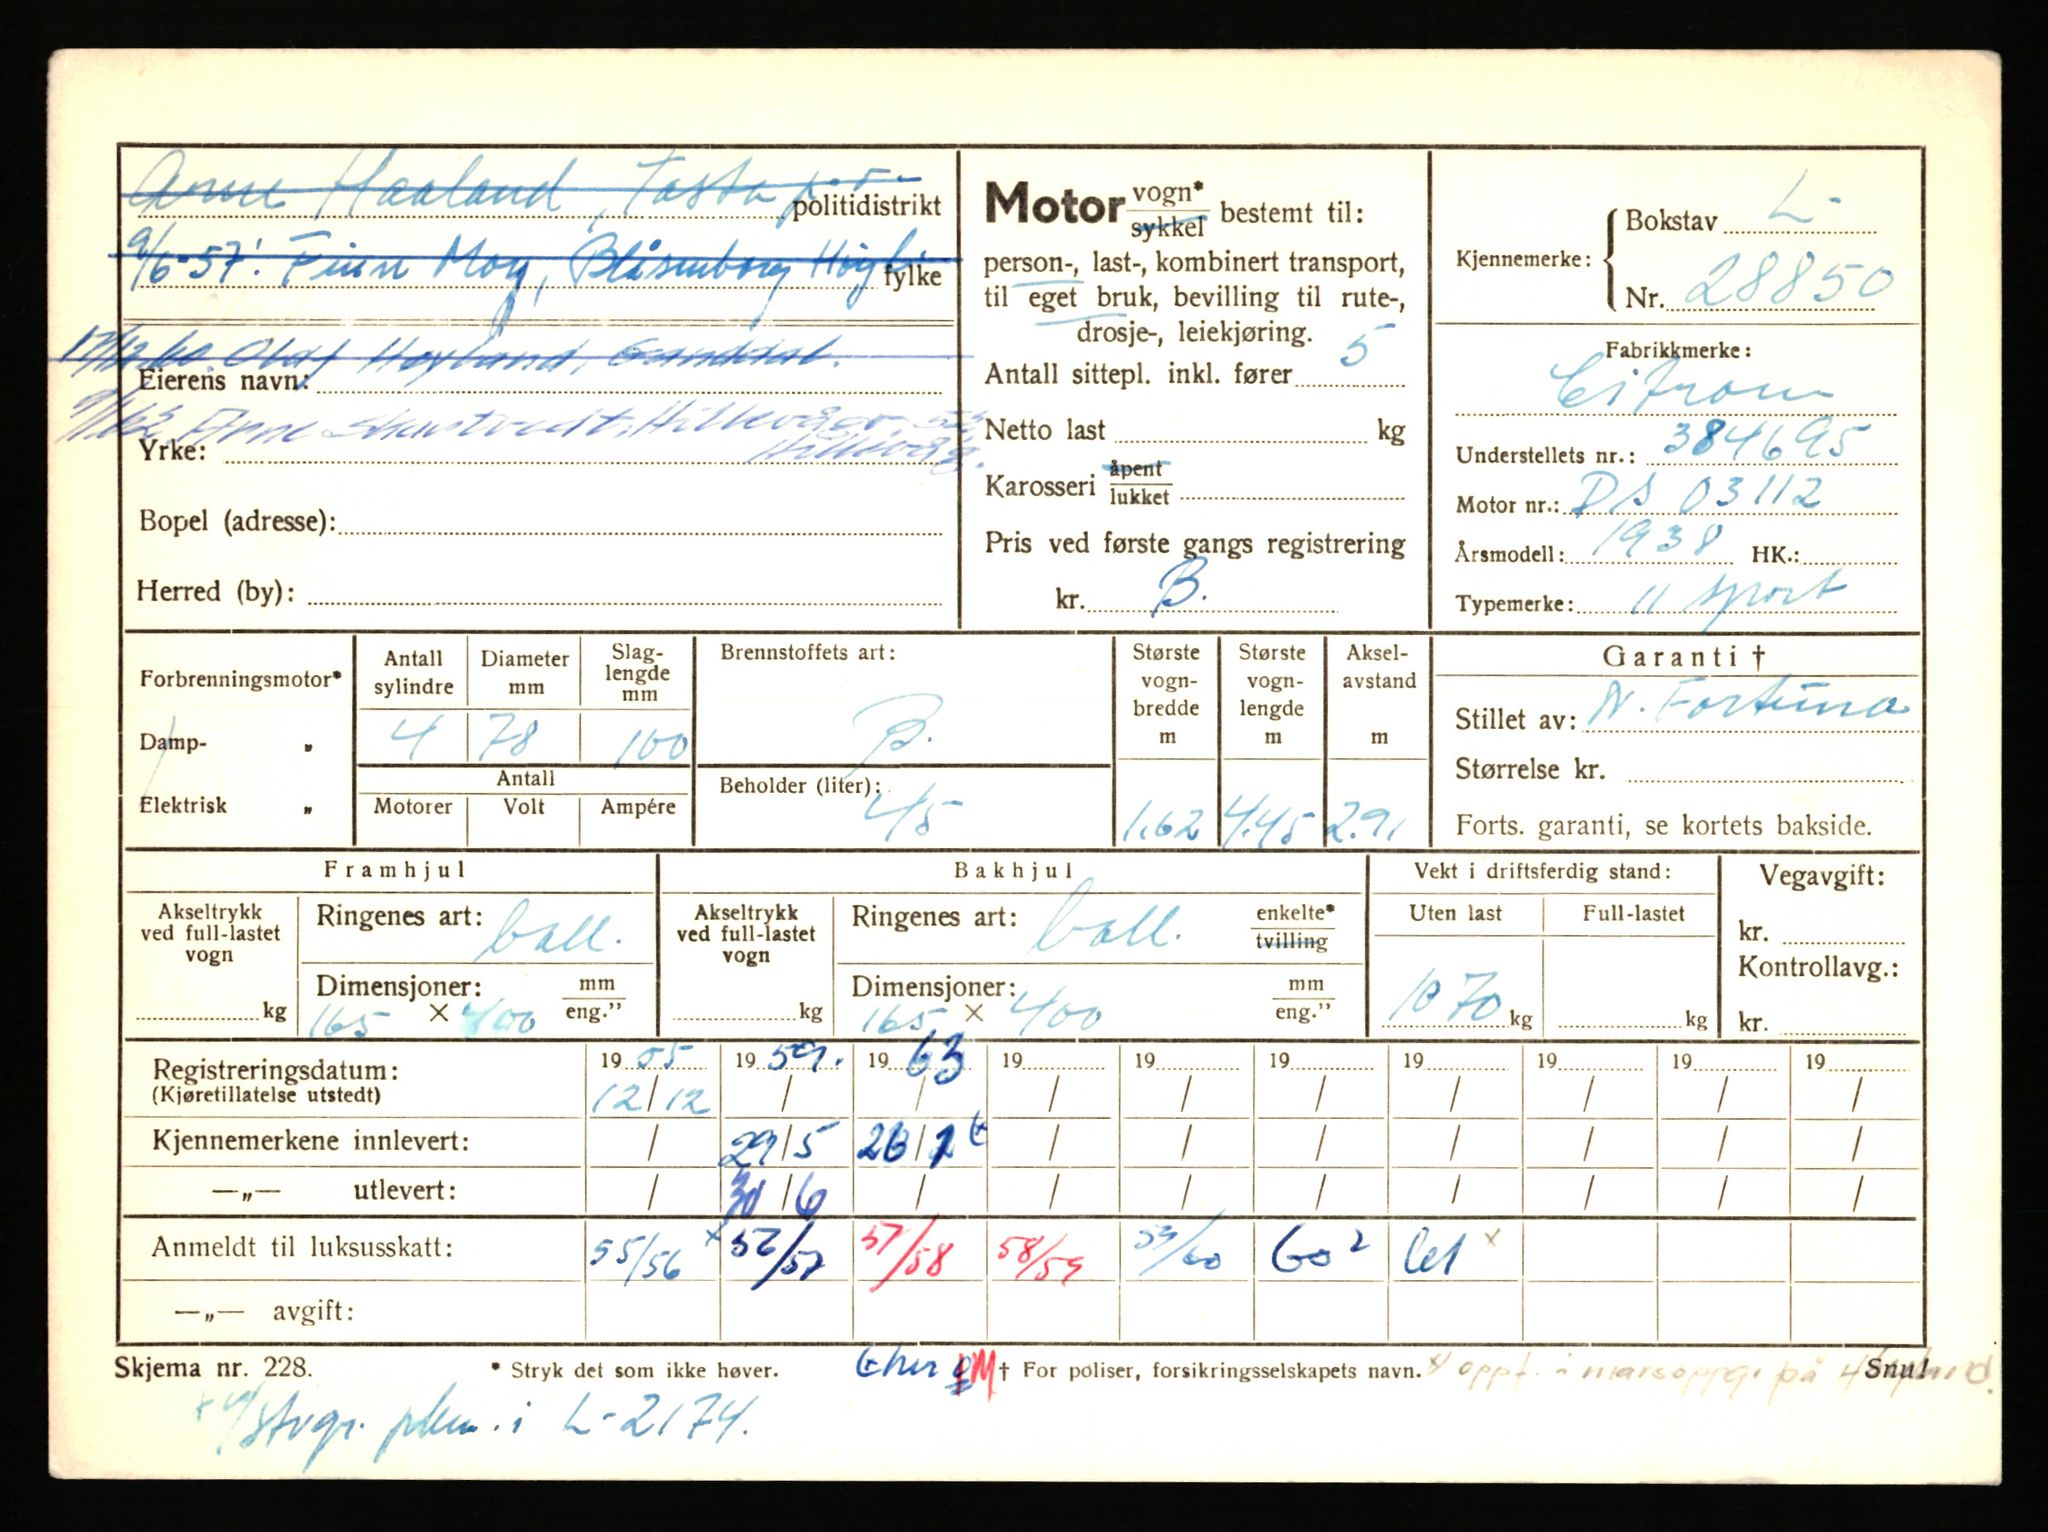 Arne Haaland, Tasta p.å.
politidistrikt
9/6-57. Finn Moy, Blåsenborg Høgli
fylke
17/12 60. Olaf Høyland, Ganddal.
Eierens navn:
9/1 62 Arne Skastvedt, Hillevågsv. 53
Hillevåg.
Yrke:
Bopel (adresse):
Herred (by):
Motor vogn* sykkel bestemt til:
person-, last-, kombinert transport,
til eget bruk, bevilling til rute-,
drosje-, leiekjøring.
Antall sittepl. inkl. fører 5
Netto last kg
Karosseri åpent lukket
Pris ved første gangs registrering
kr. B.
Kjennemerke: Bokstav L-
Nr. 28850
Fabrikkmerke:
Citroen
Understellets nr.: 384695
Motor nr.: DS 03112
Årsmodell: 1938 HK.:
Typemerke: 11 sport
Forbrenningsmotor*
Damp- „
Elektrisk „
Antall sylindre 4
Diameter mm 78
Slaglengde mm 100
Antall
Motorer Volt Ampére
Brennstoffets art:
B.
Beholder (liter):
45
Største vognbredde m 1.62
Største vognlengde m 4.45
Akselavstand m 2.91
Garanti †
Stillet av: N. Fortuna
Størrelse kr.
Forts. garanti, se kortets bakside.
Framhjul
Akseltrykk ved full-lastet vogn kg
Ringenes art: ball.
Dimensjoner: mm eng."
165 × 400
Bakhjul
Akseltrykk ved full-lastet vogn kg
Ringenes art: ball. enkelte* tvilling
Dimensjoner: mm eng."
165 × 400
Vekt i driftsferdig stand:
Uten last Full-lastet
1070 kg kg
Vegavgift:
kr.
Kontrollavg.:
kr.
Registreringsdatum: 19 55 19 59. 19 63 19 19 19 19 19 19 19
(Kjøretillatelse utstedt) 12/12 / / / / / / / / /
Kjennemerkene innlevert: / 29/5 26/1 / / / / / / /
—„— utlevert: / 30/6 / / / / / / / /
Anmeldt til luksusskatt: 55/56 x 56/57 57/58 58/59 59/60 60² 61 x
—„— avgift:
Skjema nr. 228.
* Stryk det som ikke høver.
† For poliser, forsikringsselskapets navn.
x oppf. i marsoppg. på Høyland.
Snu!
i L-2174.